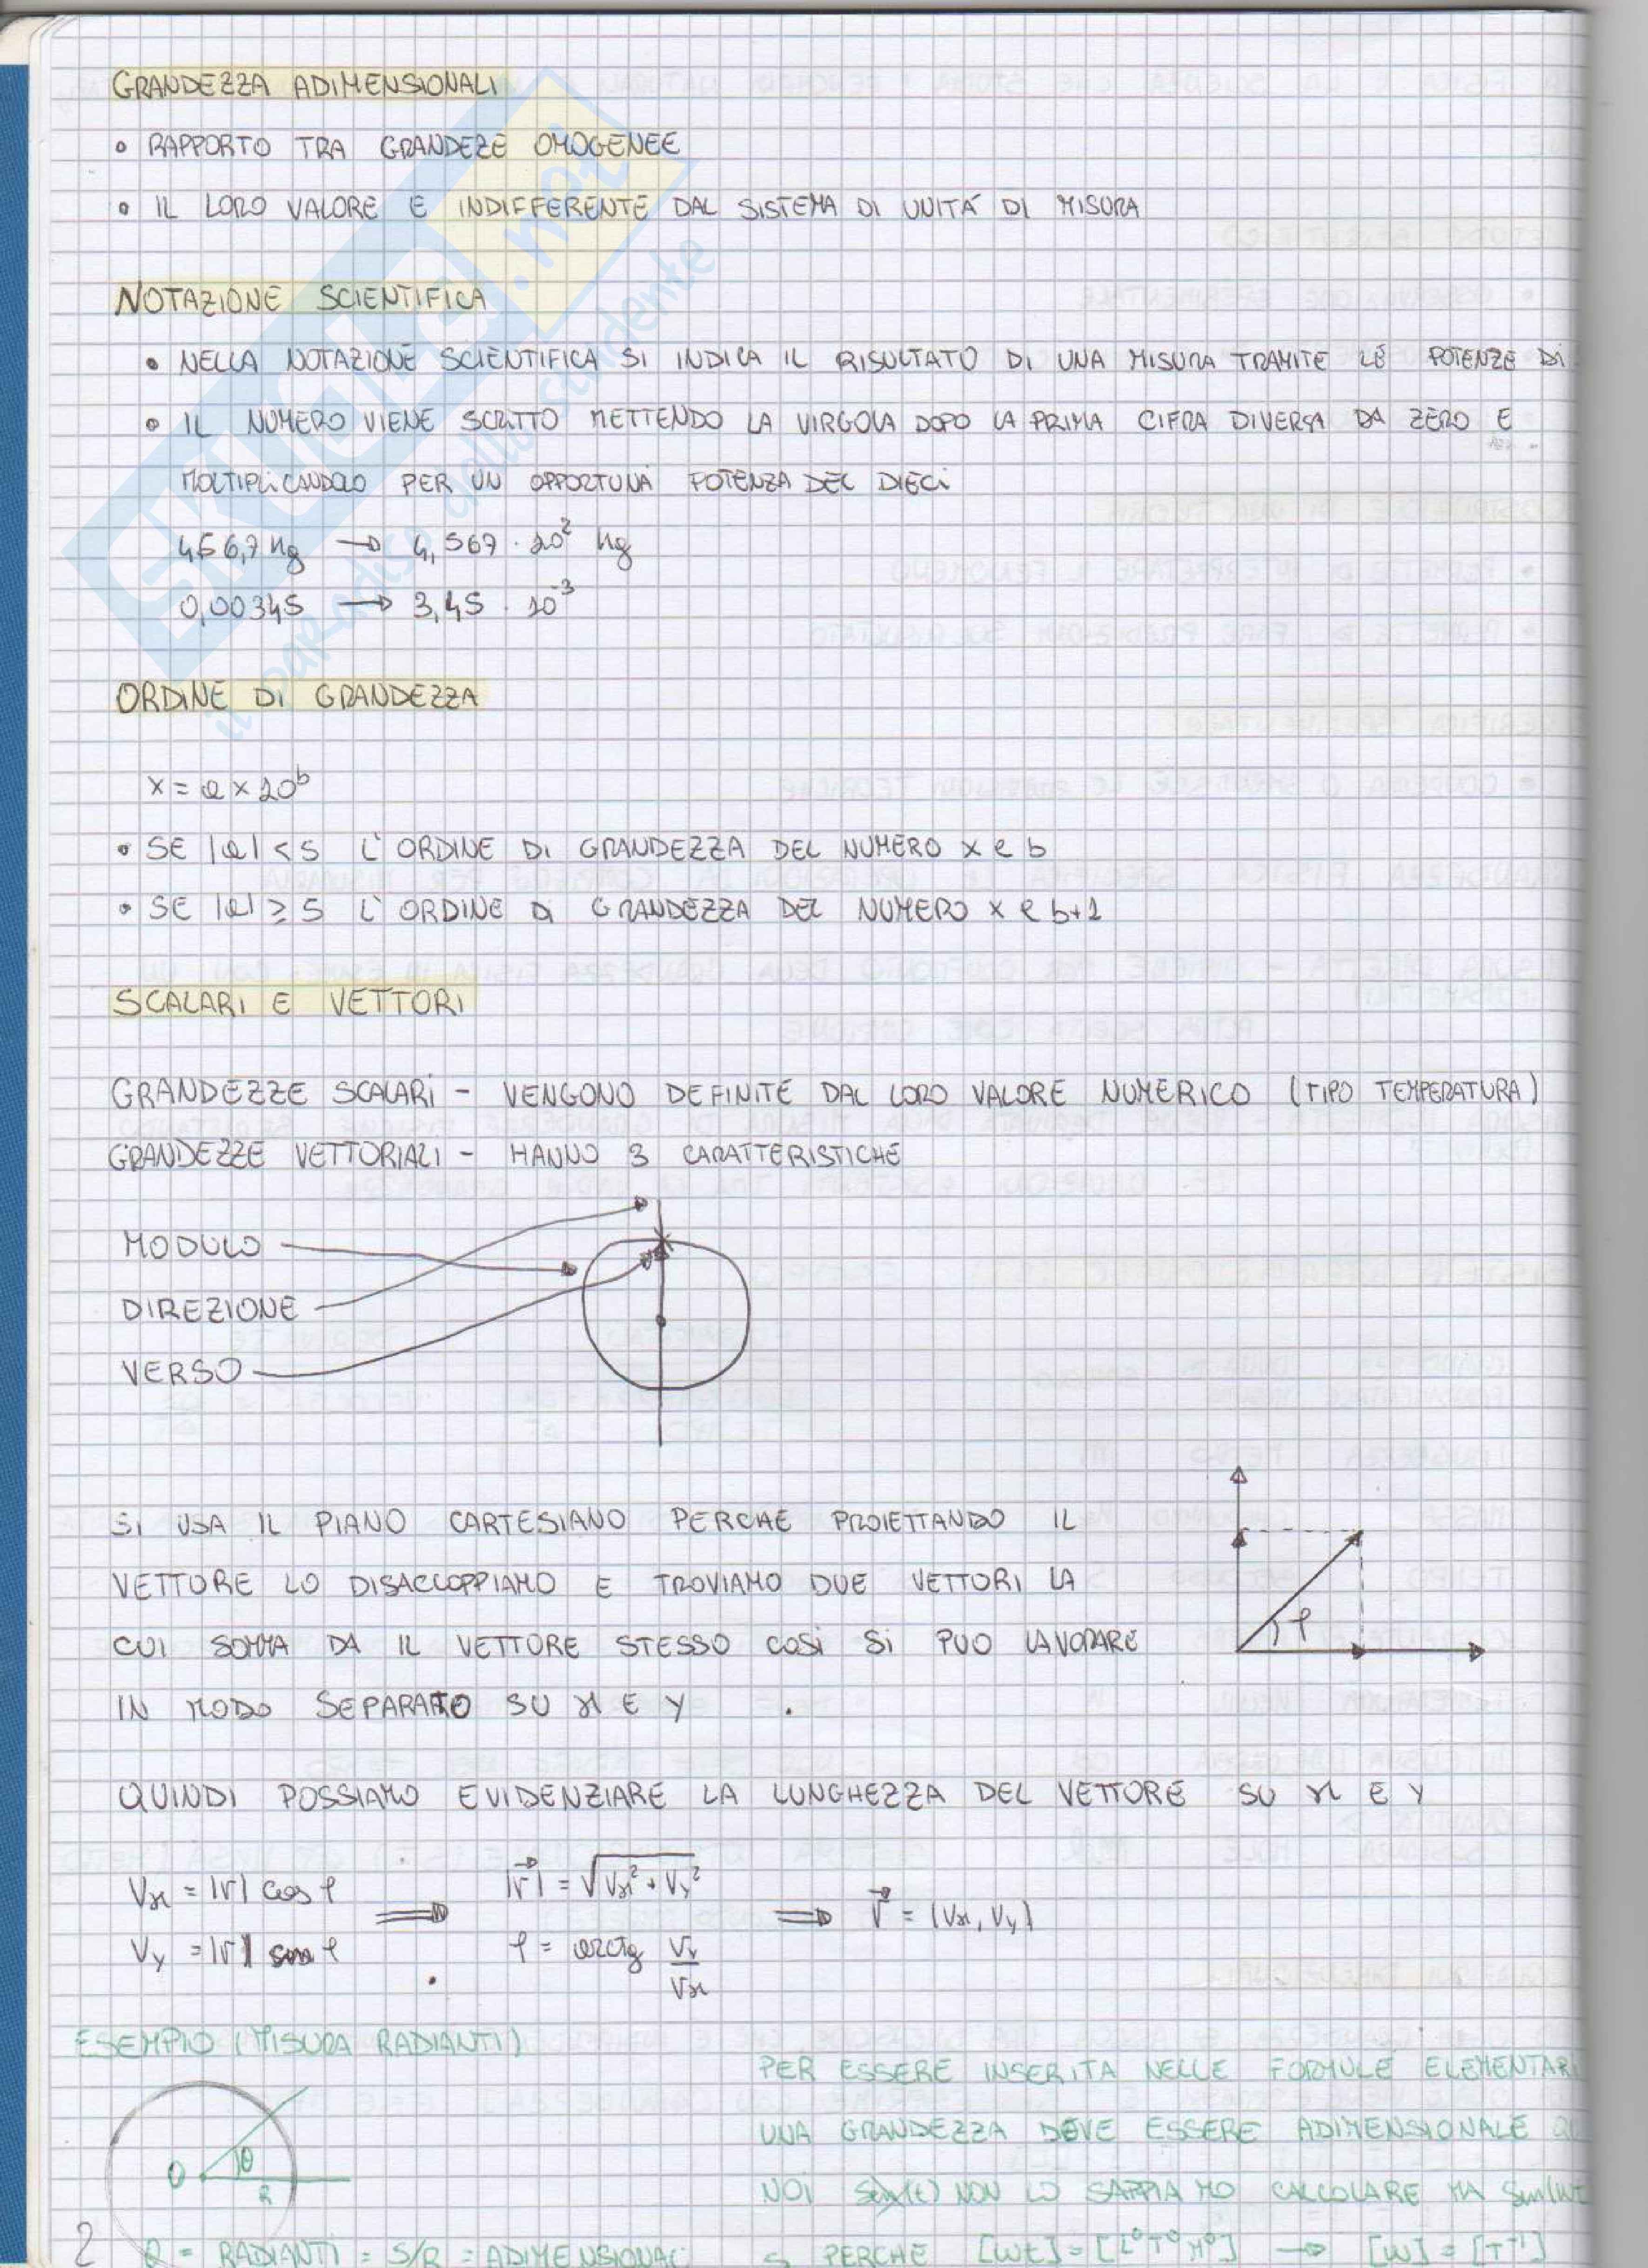 GRANDEZZA ADIMENSIONALI
• RAPPORTO TRA GRANDEZE OMOGENEE
• IL LORO VALORE E INDIFFERENTE DAL SISTEMA DI UNITÀ DI MISURA
NOTAZIONE SCIENTIFICA
• NELLA NOTAZIONE SCIENTIFICA SI INDICA IL RISULTATO DI UNA MISURA TRAMITE LE POTENZE DI
• IL NUMERO VIENE SCRITTO METTENDO LA VIRGOLA DOPO LA PRIMA CIFRA DIVERSA DA ZERO E
MOLTIPLICANDOLO PER UN OPPORTUNA POTENZA DEL DIECI
456,7 kg → 4,567 · 10² kg
0,00345 → 3,45 · 10⁻³
ORDINE DI GRANDEZZA
x = a × 10ᵇ
• SE |a| < 5 L'ORDINE DI GRANDEZZA DEL NUMERO x e b
• SE |a| ≥ 5 L'ORDINE DI GRANDEZZA DEL NUMERO x e b+1
SCALARI E VETTORI
GRANDEZZE SCALARI - VENGONO DEFINITE DAL LORO VALORE NUMERICO (TIPO TEMPERATURA)
GRANDEZZE VETTORIALI - HANNO 3 CARATTERISTICHE
MODULO
DIREZIONE
VERSO
SI USA IL PIANO CARTESIANO PERCHE PROIETTANDO IL
VETTORE LO DISACCOPPIAMO E TROVIAMO DUE VETTORI LA
φ
CUI SOMMA DA IL VETTORE STESSO COSÌ SI PUO LAVORARE
IN MODO SEPARATO SU x E y
QUINDI POSSIAMO EVIDENZIARE LA LUNGHEZZA DEL VETTORE SU x E y
Vx = |v| cos φ ⇒ |v⃗| = √Vx² + Vy² ⇒ v⃗ = (Vx, Vy)
Vy = |v| sen φ φ = arctg Vy/Vx
ESEMPIO (MISURA RADIANTI)
PER ESSERE INSERITA NELLE FORMULE ELEMENTARI
UNA GRANDEZZA DEVE ESSERE ADIMENSIONALE
O θ R
NOI sen(t) NON LO SAPPIAMO CALCOLARE MA sen(wt
= RADIANTI = S/R = ADIMENSIONAL
PERCHE [wt] = [L⁰T⁰M⁰] → [W] = [T⁻¹]
2
SKUOLA.net
il paradiso dello studente